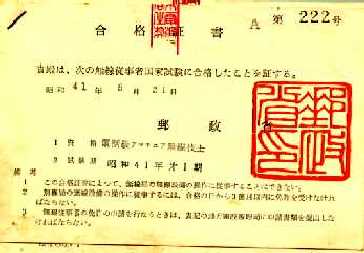 A 第 222号
合格証書
貴殿は、次の無線従事者国家試験に合格したことを証する。
昭和 41年 6月 21日
郵政省
郵政省印
1 資格 電話級アマチュア無線技士
2 試験期 昭和41年才1期
1 この合格証書によつて、無線局の無線設備の操作に従事することはできない。
2 無線局の無線設備の操作に従事するには、合格の日から3箇月以内に免許を受けなけれ
ばならない。
3 無線従事者の免許の申請を行なうときは、表記の地方電波監理局に申請書類を提出しな
ければならない。